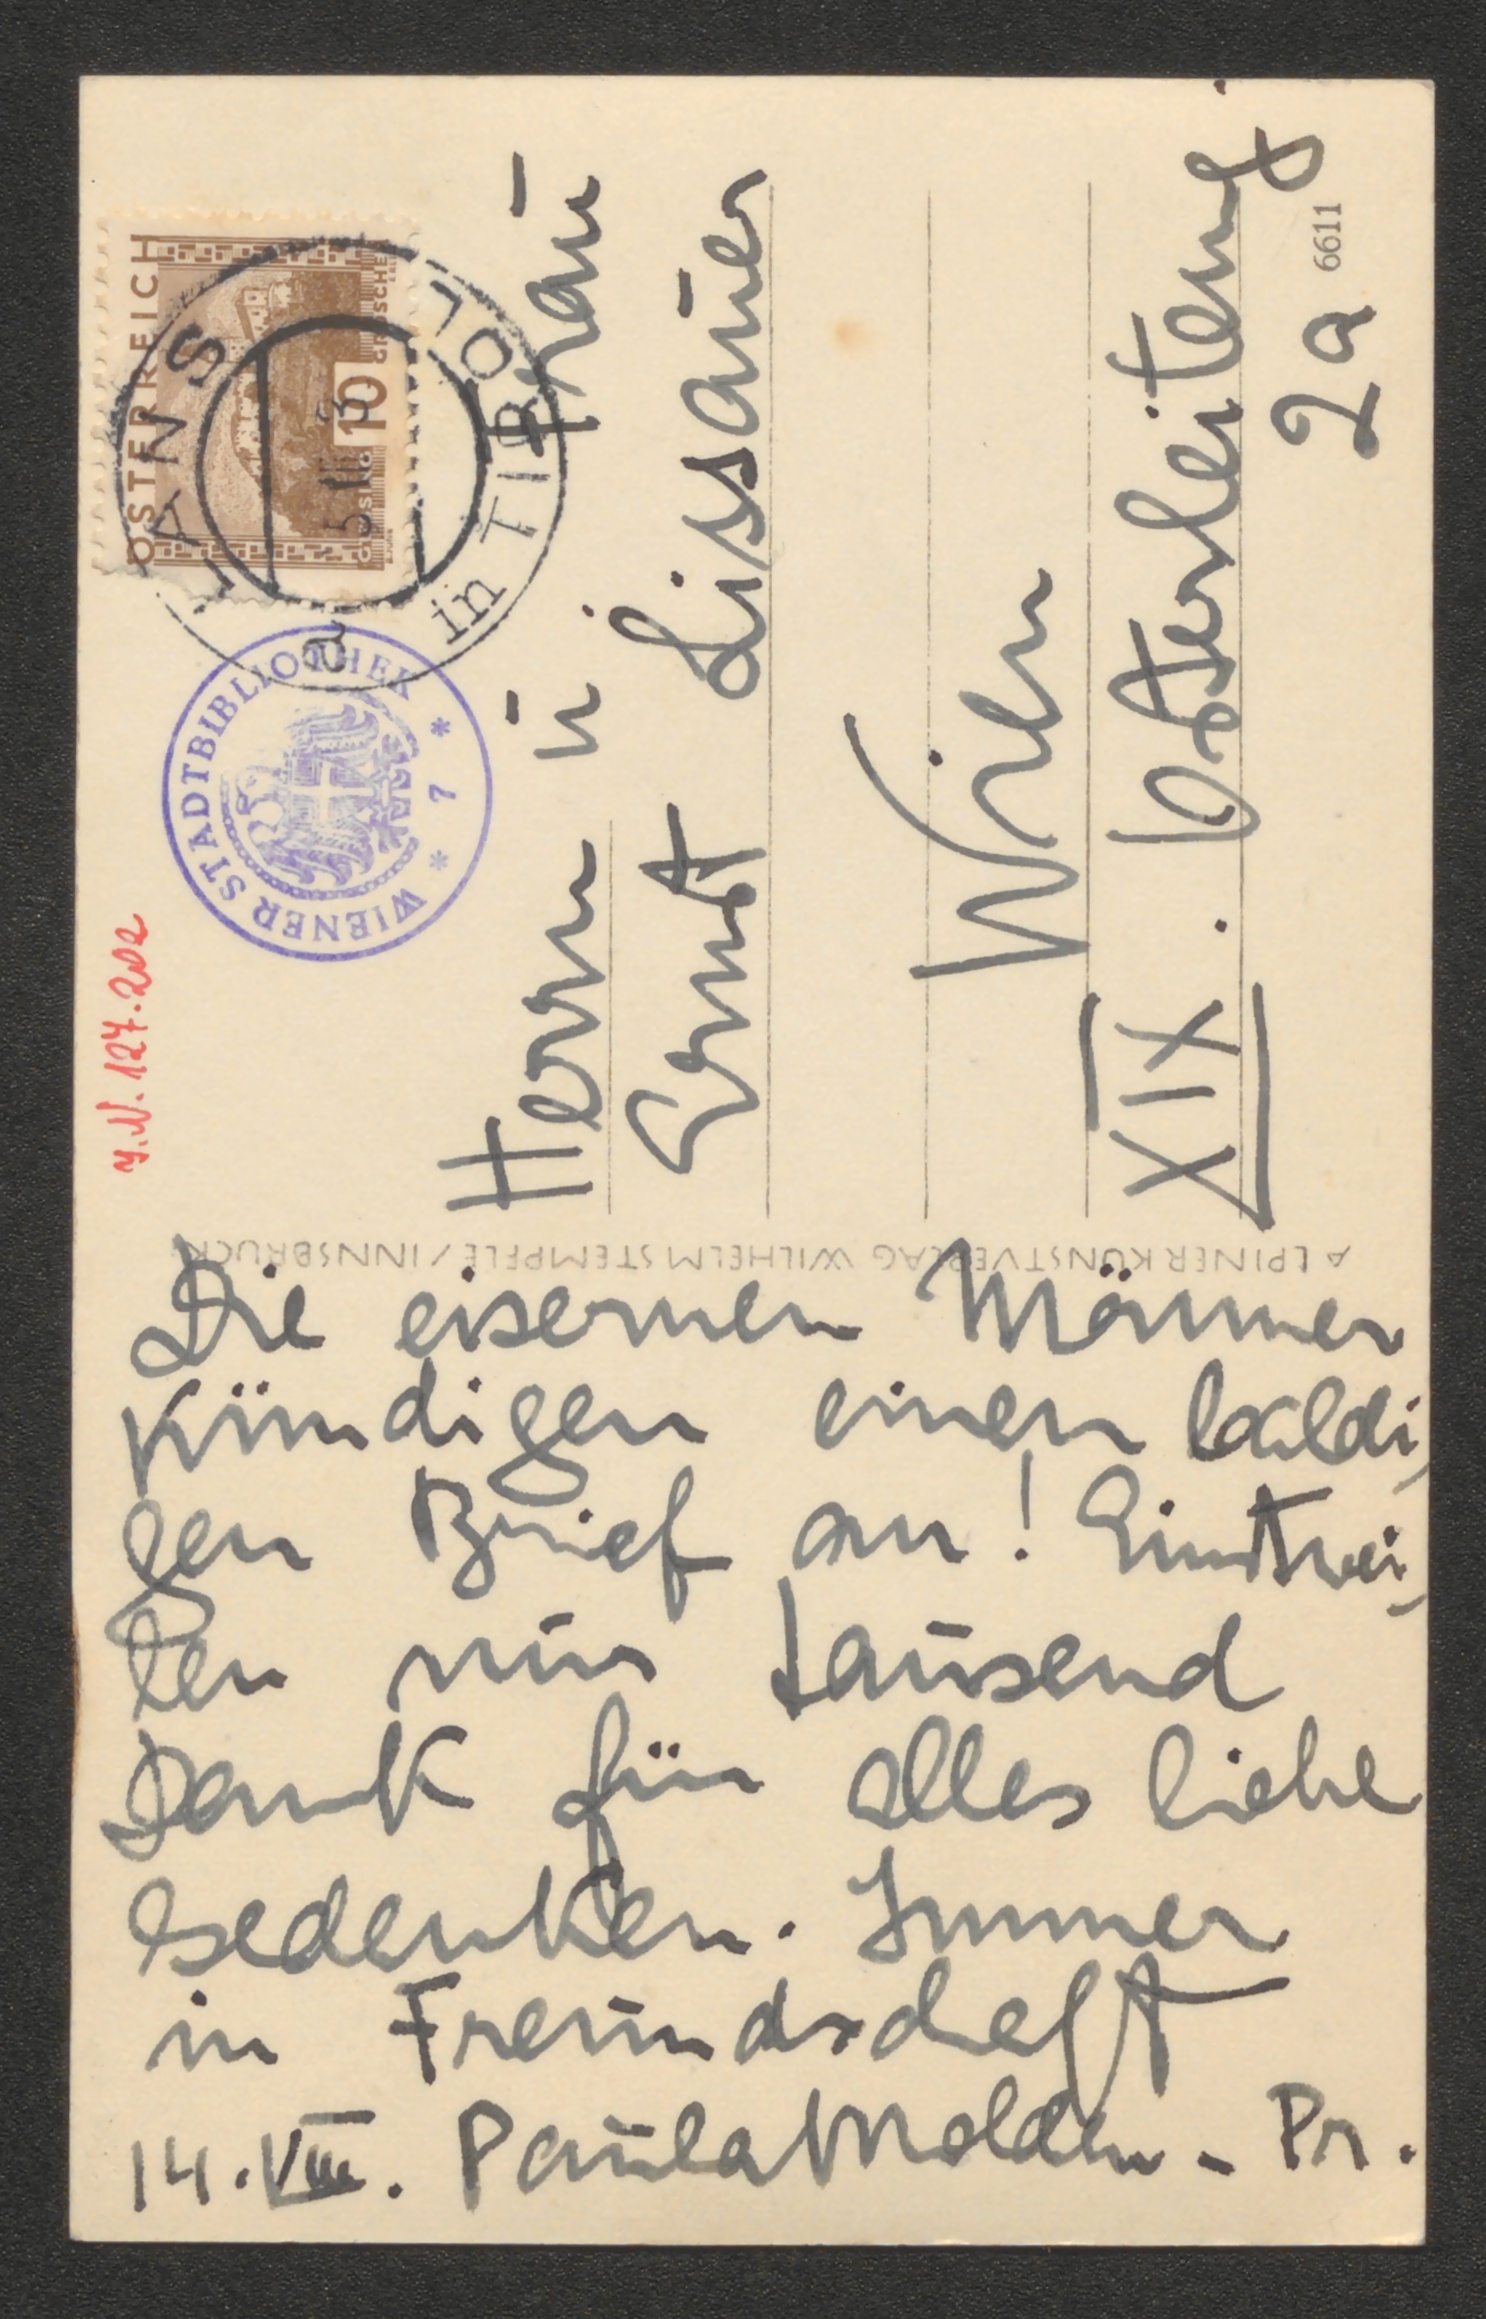 ÖSTERREICH
10
GROSCHEN
LANS
in TIROL
a
WIENER STADTBIBLIOTHEK
* 7 *
J.N. 127.202
Herrn u. Frau
Ernst Lissauer
Wien
XIX.
2a
6611
ALPINER KUNSTVERLAG WILHELM STEMPFLE / INNSBRUCK
Die eisernen Männer
kündigen einen baldi-
gen Brief an! Einstwei-
len nur tausend
Dank für alles liebe
Gedenken. Immer
in Freundschaft
14. VIII. Paula Molden - Pr.